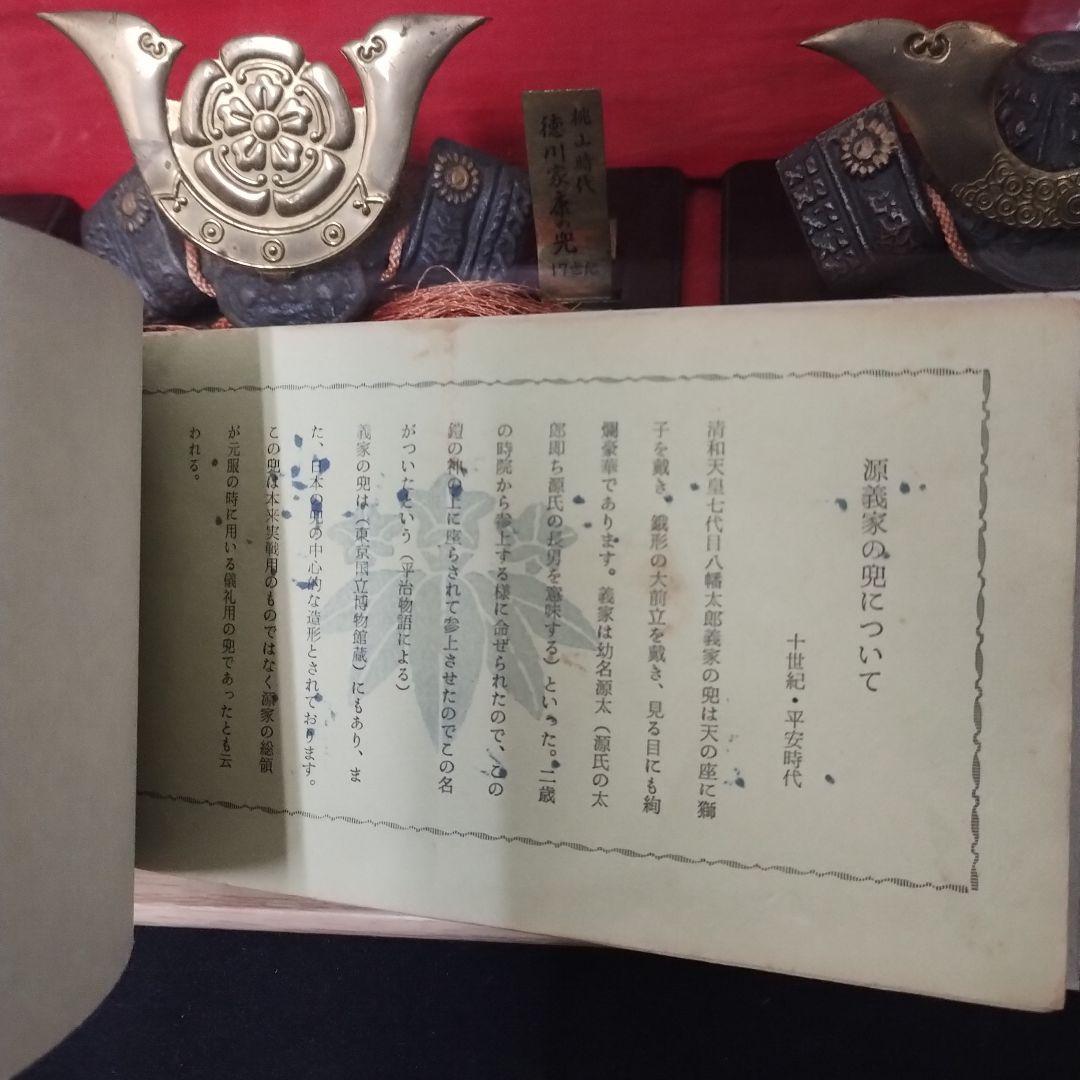 桃山時代
徳川家康の兜
17世紀
源義家の兜について
十世紀・平安時代
清和天皇七代目八幡太郎義家の兜は天の座に獅
子を戴き、鍬形の大前立を戴き、見る目にも絢
爛豪華であります。義家は幼名源太（源氏の太
郎即ち源氏の長男を意味する）といった。二歳
の時院から参上する様に命ぜられたので、この
鎧の袖の上に座らされて参上させたのでこの名
がついたという（平治物語による）
義家の兜は（東京国立博物館蔵）にもあり、ま
た、日本の兜の中心的な造形とされております。
この兜は本来実戦用のものではなく源家の総領
が元服の時に用いる儀礼用の兜であったとも云
われる。